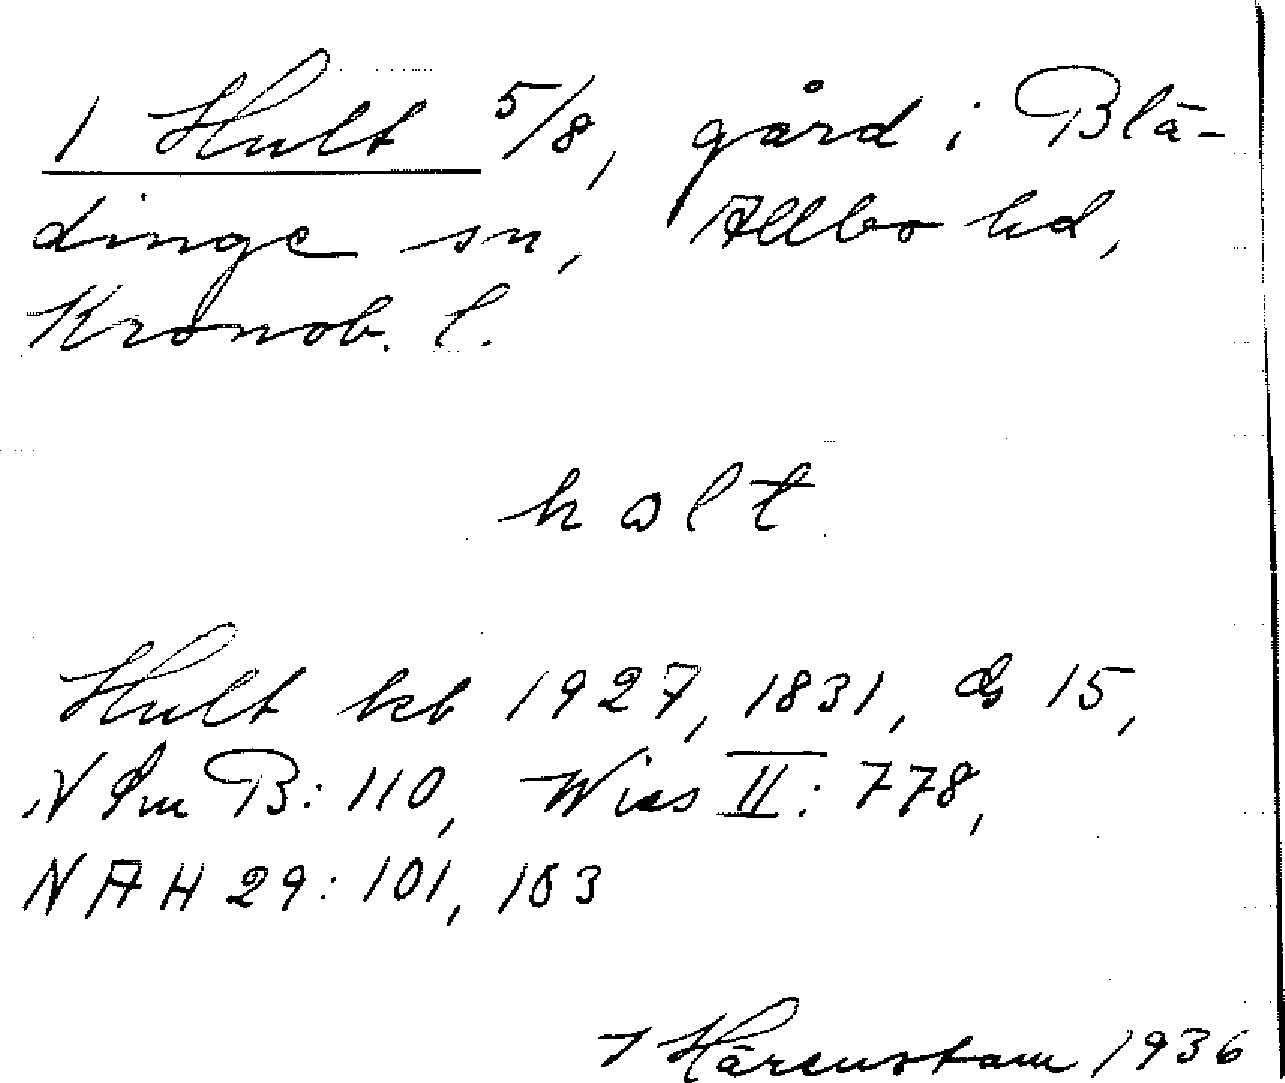 1 Hult 5/8, gård i Blä-
dinge sn, Allbo hd,
Kronob. l.
holt
Hult kb 1927, 1831, ds 15,
N Sm B: 110, Wies II: 778,
NAH 29: 101, 103
Härenstam 1936